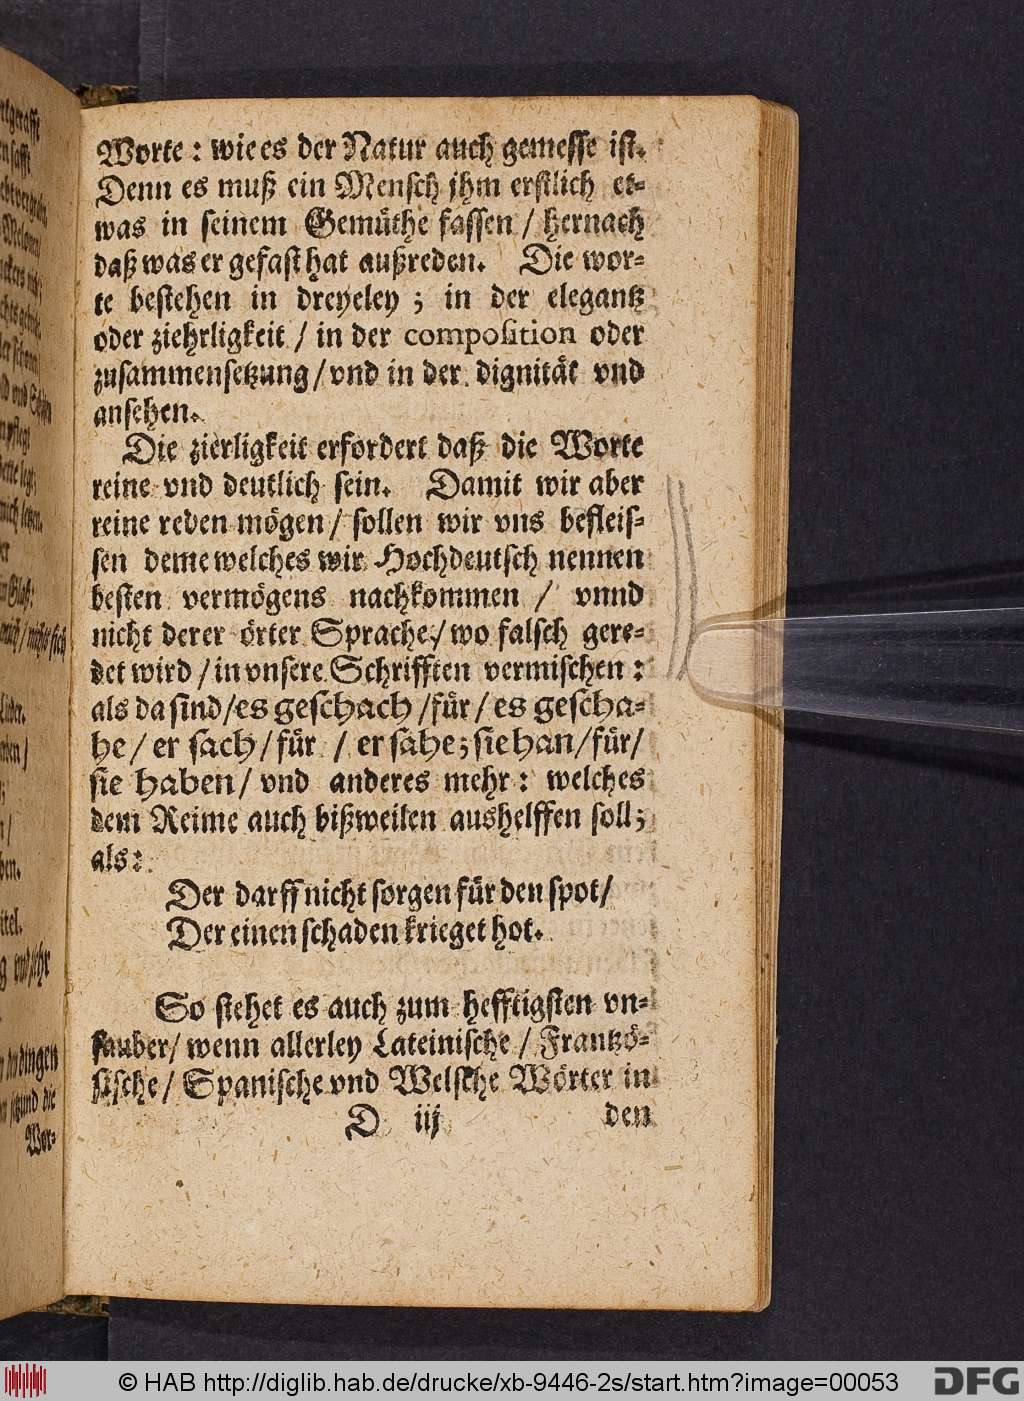 Worte: wie es der Natur auch gemesse ist.
Denn es muß ein Mensch jhm erstlich et-
was in seinem Gemüthe fassen / hernach
daß was er gefast hat außreden. Die wor-
te bestehen in dreyeley; in der elegantz
oder ziehrligkeit / in der composition oder
zusammensetzung / vnd in der dignität vnd
ansehen.
Die zierligkeit erfordert daß die Worte
reine vnd deutlich sein. Damit wir aber
reine reden mögen / sollen wir vns befleis-
sen deme welches wir Hochdeutsch nennen
besten vermögens nachkommen / vnnd
nicht derer örter Sprache / wo falsch gere-
det wird / in vnsere Schrifften vermischen:
als da sind / es geschach / für / es gescha-
he / er sach / für / er sahe; sie han / für /
sie haben / vnd anderes mehr: welches
dem Reime auch bißweilen aushelffen soll;
als:
Der darff nicht sorgen für den spot /
Der einen schaden krieget hot.
So stehet es auch zum hefftigsten vn-
sauber / wenn allerley Lateinische / Frantzö-
sische / Spanische vnd Welsche Wörter in
D iij den
© HAB http://diglib.hab.de/drucke/xb-9446-2s/start.htm?image=00053
DFG